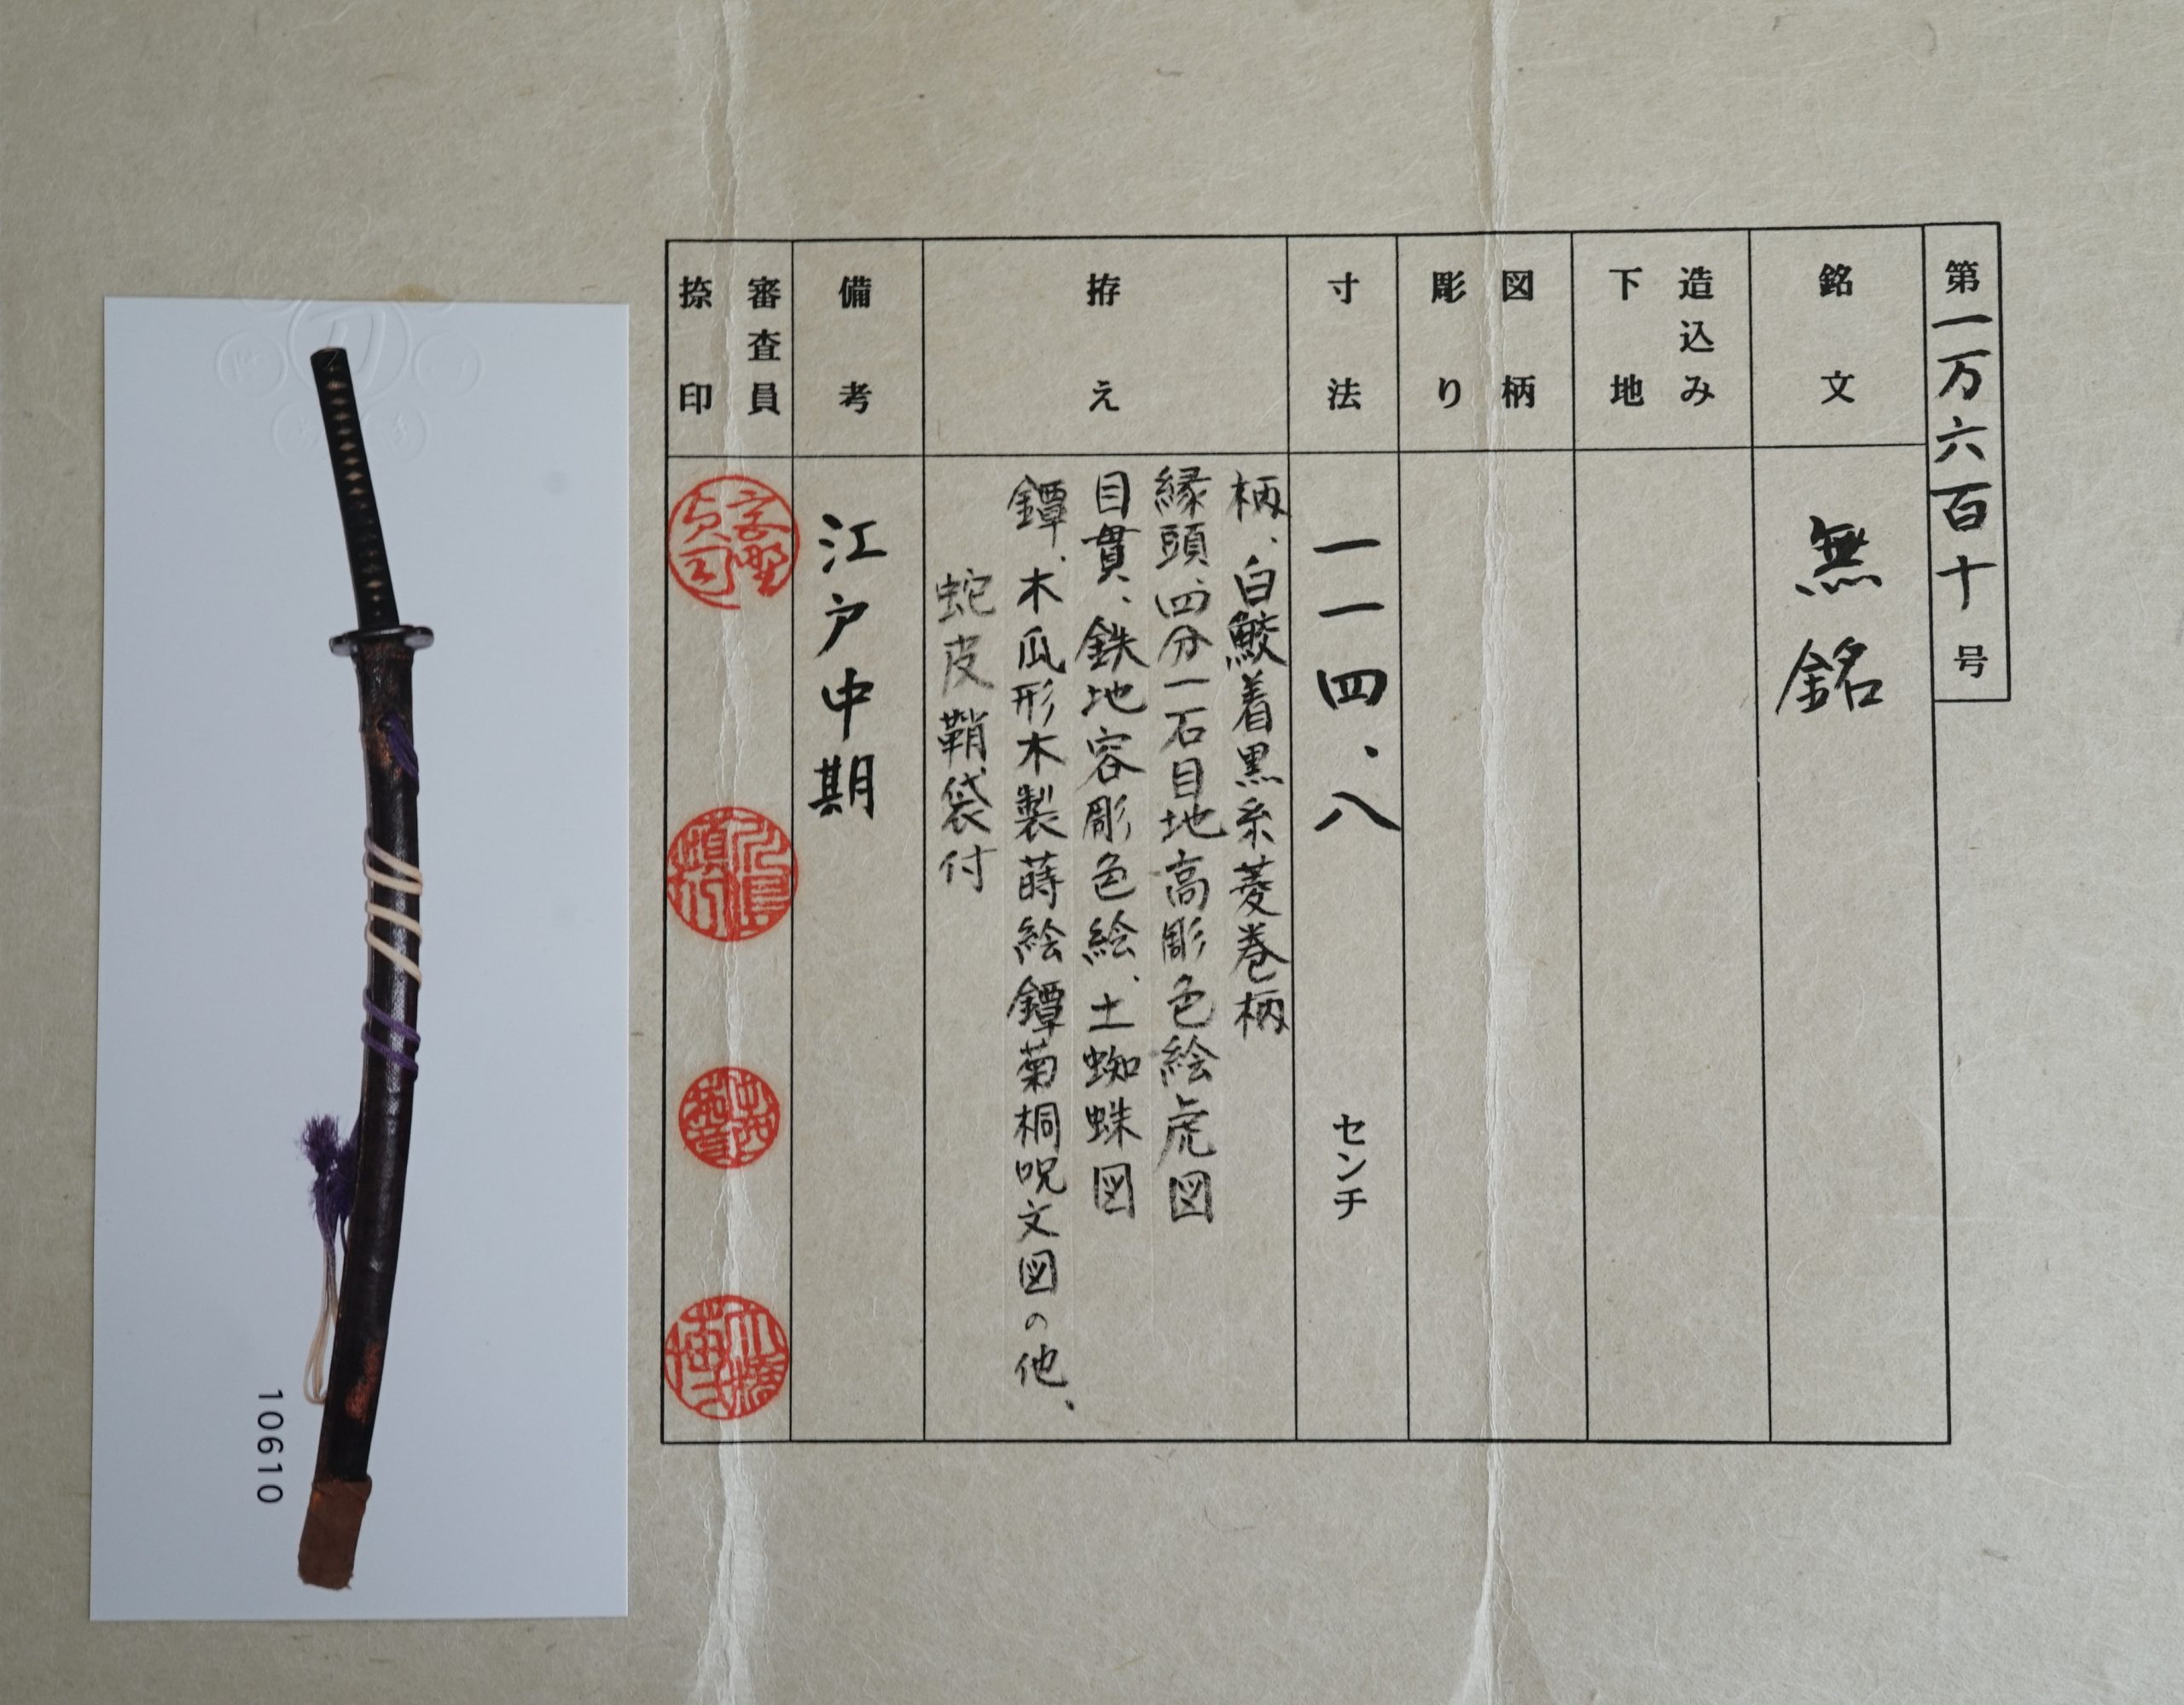 第一万六百十号
銘文
無銘
造込み
下地
図柄
彫り
寸法
一一四.八 センチ
拵え
柄、白鮫着黒糸菱巻柄
縁頭、四分一石目地高彫色絵虎図
目貫、鉄地容彫色絵、土蜘蛛図
鐔、木瓜形木製蒔絵鐔菊桐呪文図の他、
蛇皮鞘袋付
備考
江戸中期
審査員
捺印
10610